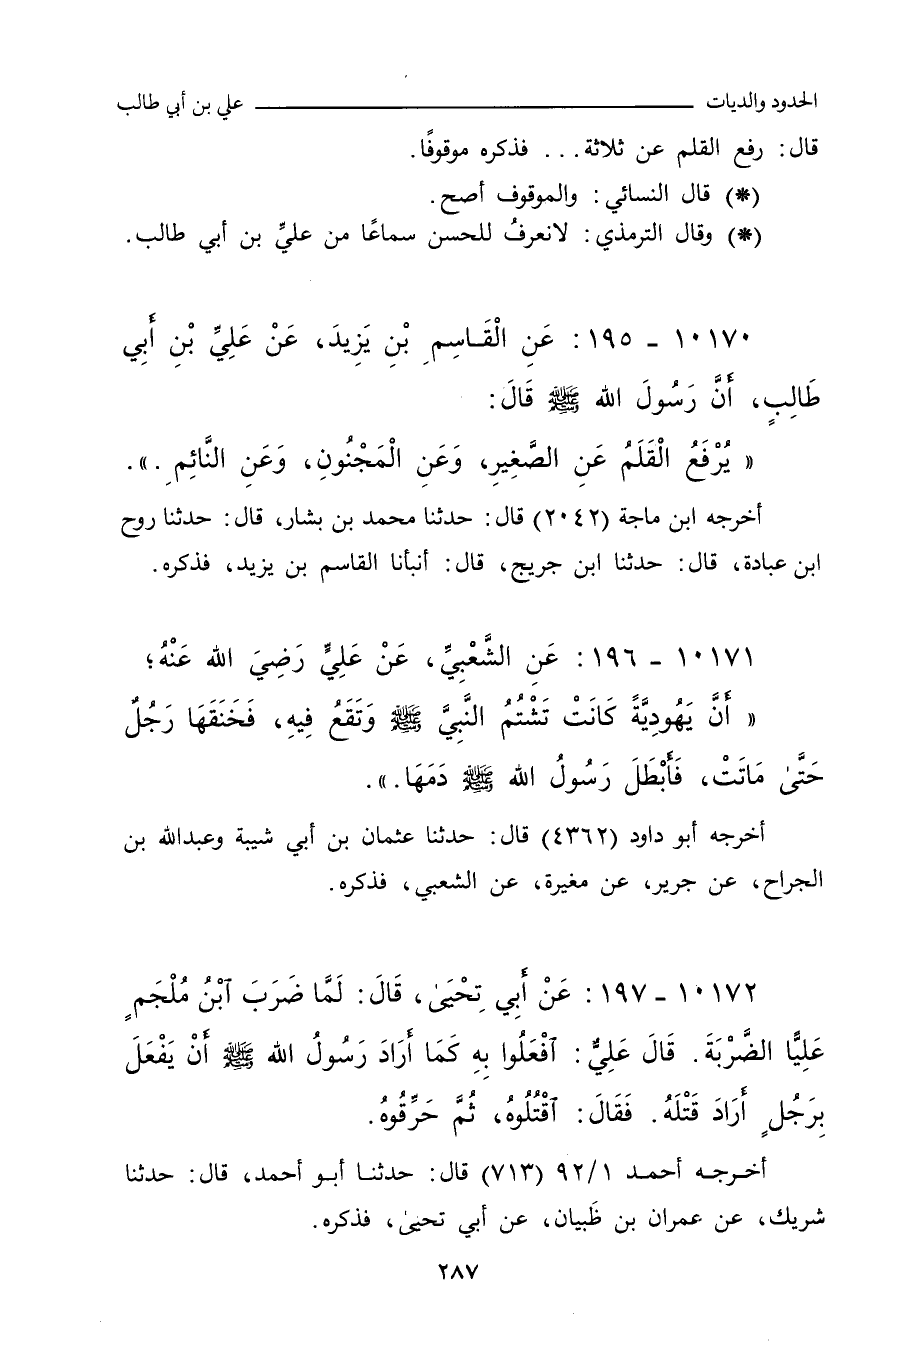 الحدود والديات ــــــــــــــــــــ علي بن أبي طالب
قال: رفع القلم عن ثلاثة... فذكره موقوفًا.
(*) قال النسائي: والموقوف أصح.
(*) وقال الترمذي: لانعرفُ للحسن سماعًا من عليِّ بن أبي طالب.
١٠١٧٠ ـ ١٩٥: عَنِ الْقَاسِمِ بْنِ يَزِيدَ، عَنْ عَلِيِّ بْنِ أَبِي
طَالِبٍ، أَنَّ رَسُولَ الله ﷺ قَالَ:
« يُرْفَعُ الْقَلَمُ عَنِ الصَّغِيرِ، وَعَنِ الْمَجْنُونِ، وَعَنِ النَّائِمِ .».
أخرجه ابن ماجة (٢٠٤٢) قال: حدثنا محمد بن بشار، قال: حدثنا روح
ابن عبادة، قال: حدثنا ابن جريج، قال: أنبأنا القاسم بن يزيد، فذكره.
١٠١٧١ ـ ١٩٦: عَنِ الشَّعْبِيِّ، عَنْ عَلِيٍّ رَضِيَ الله عَنْهُ؛
« أَنَّ يَهُودِيَّةً كَانَتْ تَشْتُمُ النَّبِيَّ ﷺ وَتَقَعُ فِيهِ، فَخَنَقَهَا رَجُلٌ
حَتَّىٰ مَاتَتْ، فَأَبْطَلَ رَسُولُ الله ﷺ دَمَهَا.».
أخرجه أبو داود (٤٣٦٢) قال: حدثنا عثمان بن أبي شيبة وعبدالله بن
الجراح، عن جرير، عن مغيرة، عن الشعبي، فذكره.
١٠١٧٢ ـ ١٩٧: عَنْ أَبِي تِحْيَىٰ، قَالَ: لَمَّا ضَرَبَ ٱبْنُ مُلْجَمٍ
عَلِيًّا الضَّرْبَةَ. قَالَ عَلِيٌّ: ٱفْعَلُوا بِهِ كَمَا أَرَادَ رَسُولُ الله ﷺ أَنْ يَفْعَلَ
بِرَجُلٍ أَرَادَ قَتْلَهُ. فَقَالَ: ٱقْتُلُوهُ، ثُمَّ حَرِّقُوهُ.
أخرجه أحمد ٩٢/١ (٧١٣) قال: حدثنا أبو أحمد، قال: حدثنا
شريك، عن عمران بن ظَبيان، عن أبي تحيىٰ، فذكره.
٢٨٧